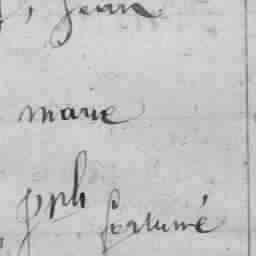 , Jean
marie
jph fortuné